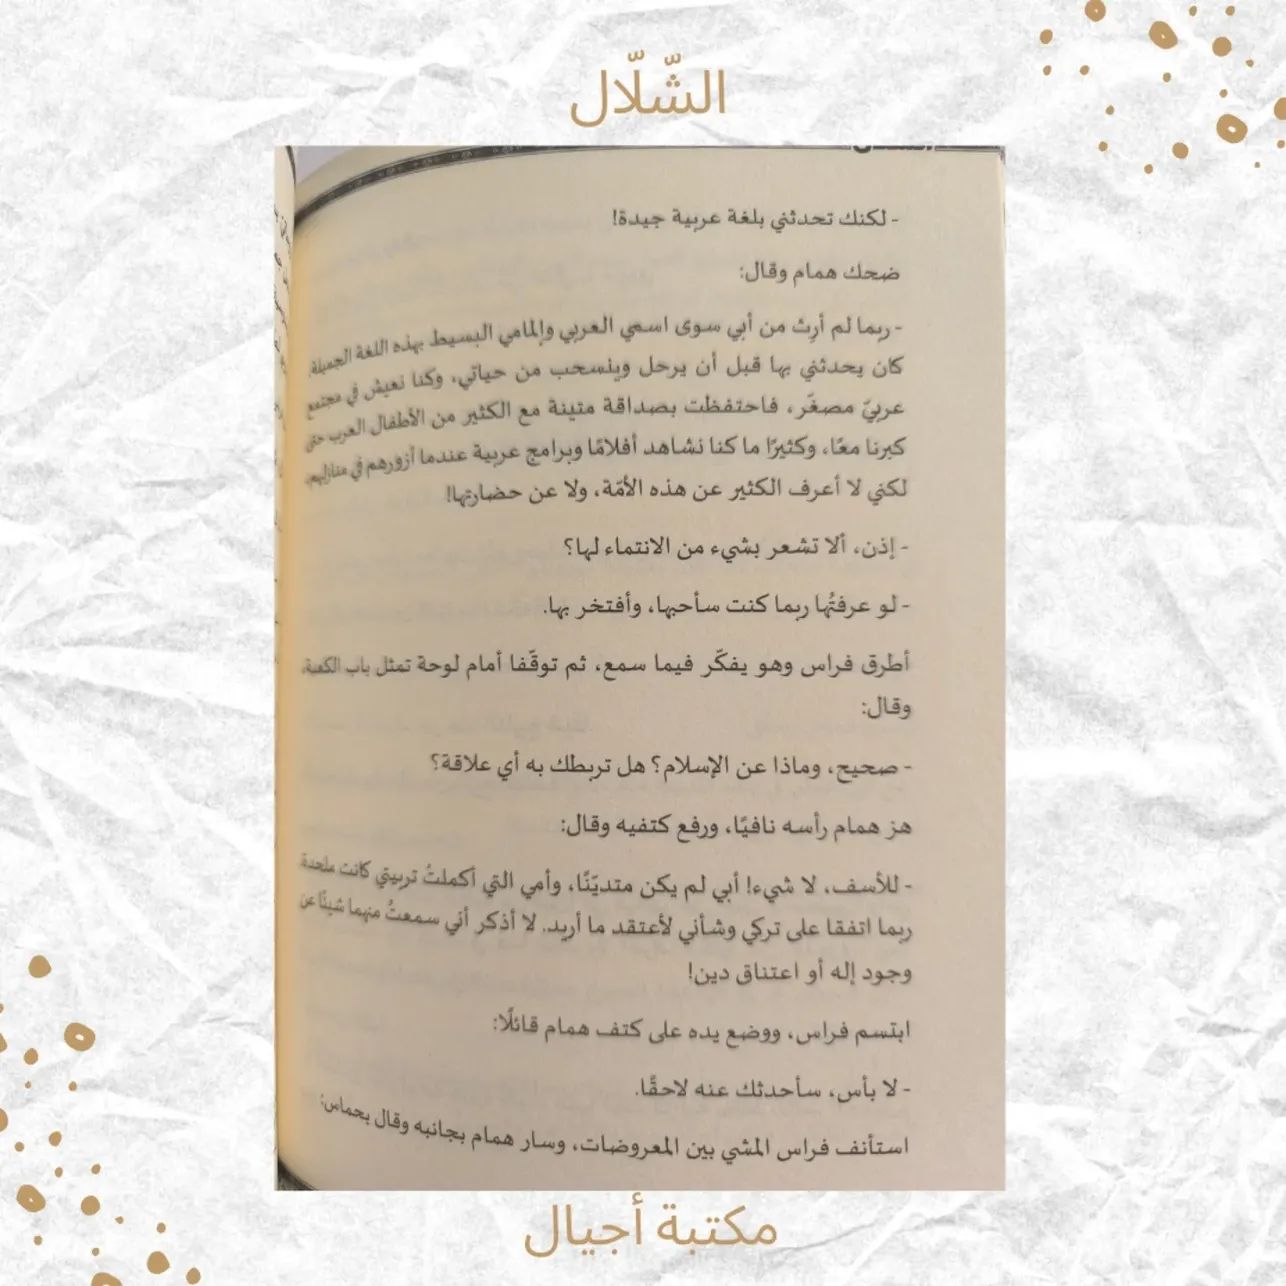 الشّلّال
- لكنك تحدثني بلغة عربية جيدة!
ضحك همام وقال:
- ربما لم أرِث من أبي سوى اسمي العربي وإلمامي البسيط بهذه اللغة الجميلة،
كان يحدثني بها قبل أن يرحل وينسحب من حياتي، وكنا نعيش في مجتمع
عربيّ مصغّر، فاحتفظت بصداقة متينة مع الكثير من الأطفال العرب حتى
كبرنا معًا، وكثيرًا ما كنا نشاهد أفلامًا وبرامج عربية عندما أزورهم في منازلهم،
لكني لا أعرف الكثير عن هذه الأمّة، ولا عن حضارتها!
- إذن، ألا تشعر بشيء من الانتماء لها؟
- لو عرفتُها ربما كنت سأحبها، وأفتخر بها.
أطرق فراس وهو يفكّر فيما سمع، ثم توقّفا أمام لوحة تمثل باب الكعبة،
وقال:
- صحيح، وماذا عن الإسلام؟ هل تربطك به أي علاقة؟
هز همام رأسه نافيًا، ورفع كتفيه وقال:
- للأسف، لا شيء! أبي لم يكن متديّنًا، وأمي التي أكملتُ تربيتي كانت ملحدة.
ربما اتفقا على تركي وشأني لأعتقد ما أريد. لا أذكر أني سمعتُ منهما شيئًا عن
وجود إله أو اعتناق دين!
ابتسم فراس، ووضع يده على كتف همام قائلًا:
- لا بأس، سأحدثك عنه لاحقًا.
استأنف فراس المشي بين المعروضات، وسار همام بجانبه وقال بحماس:
مكتبة أجيال